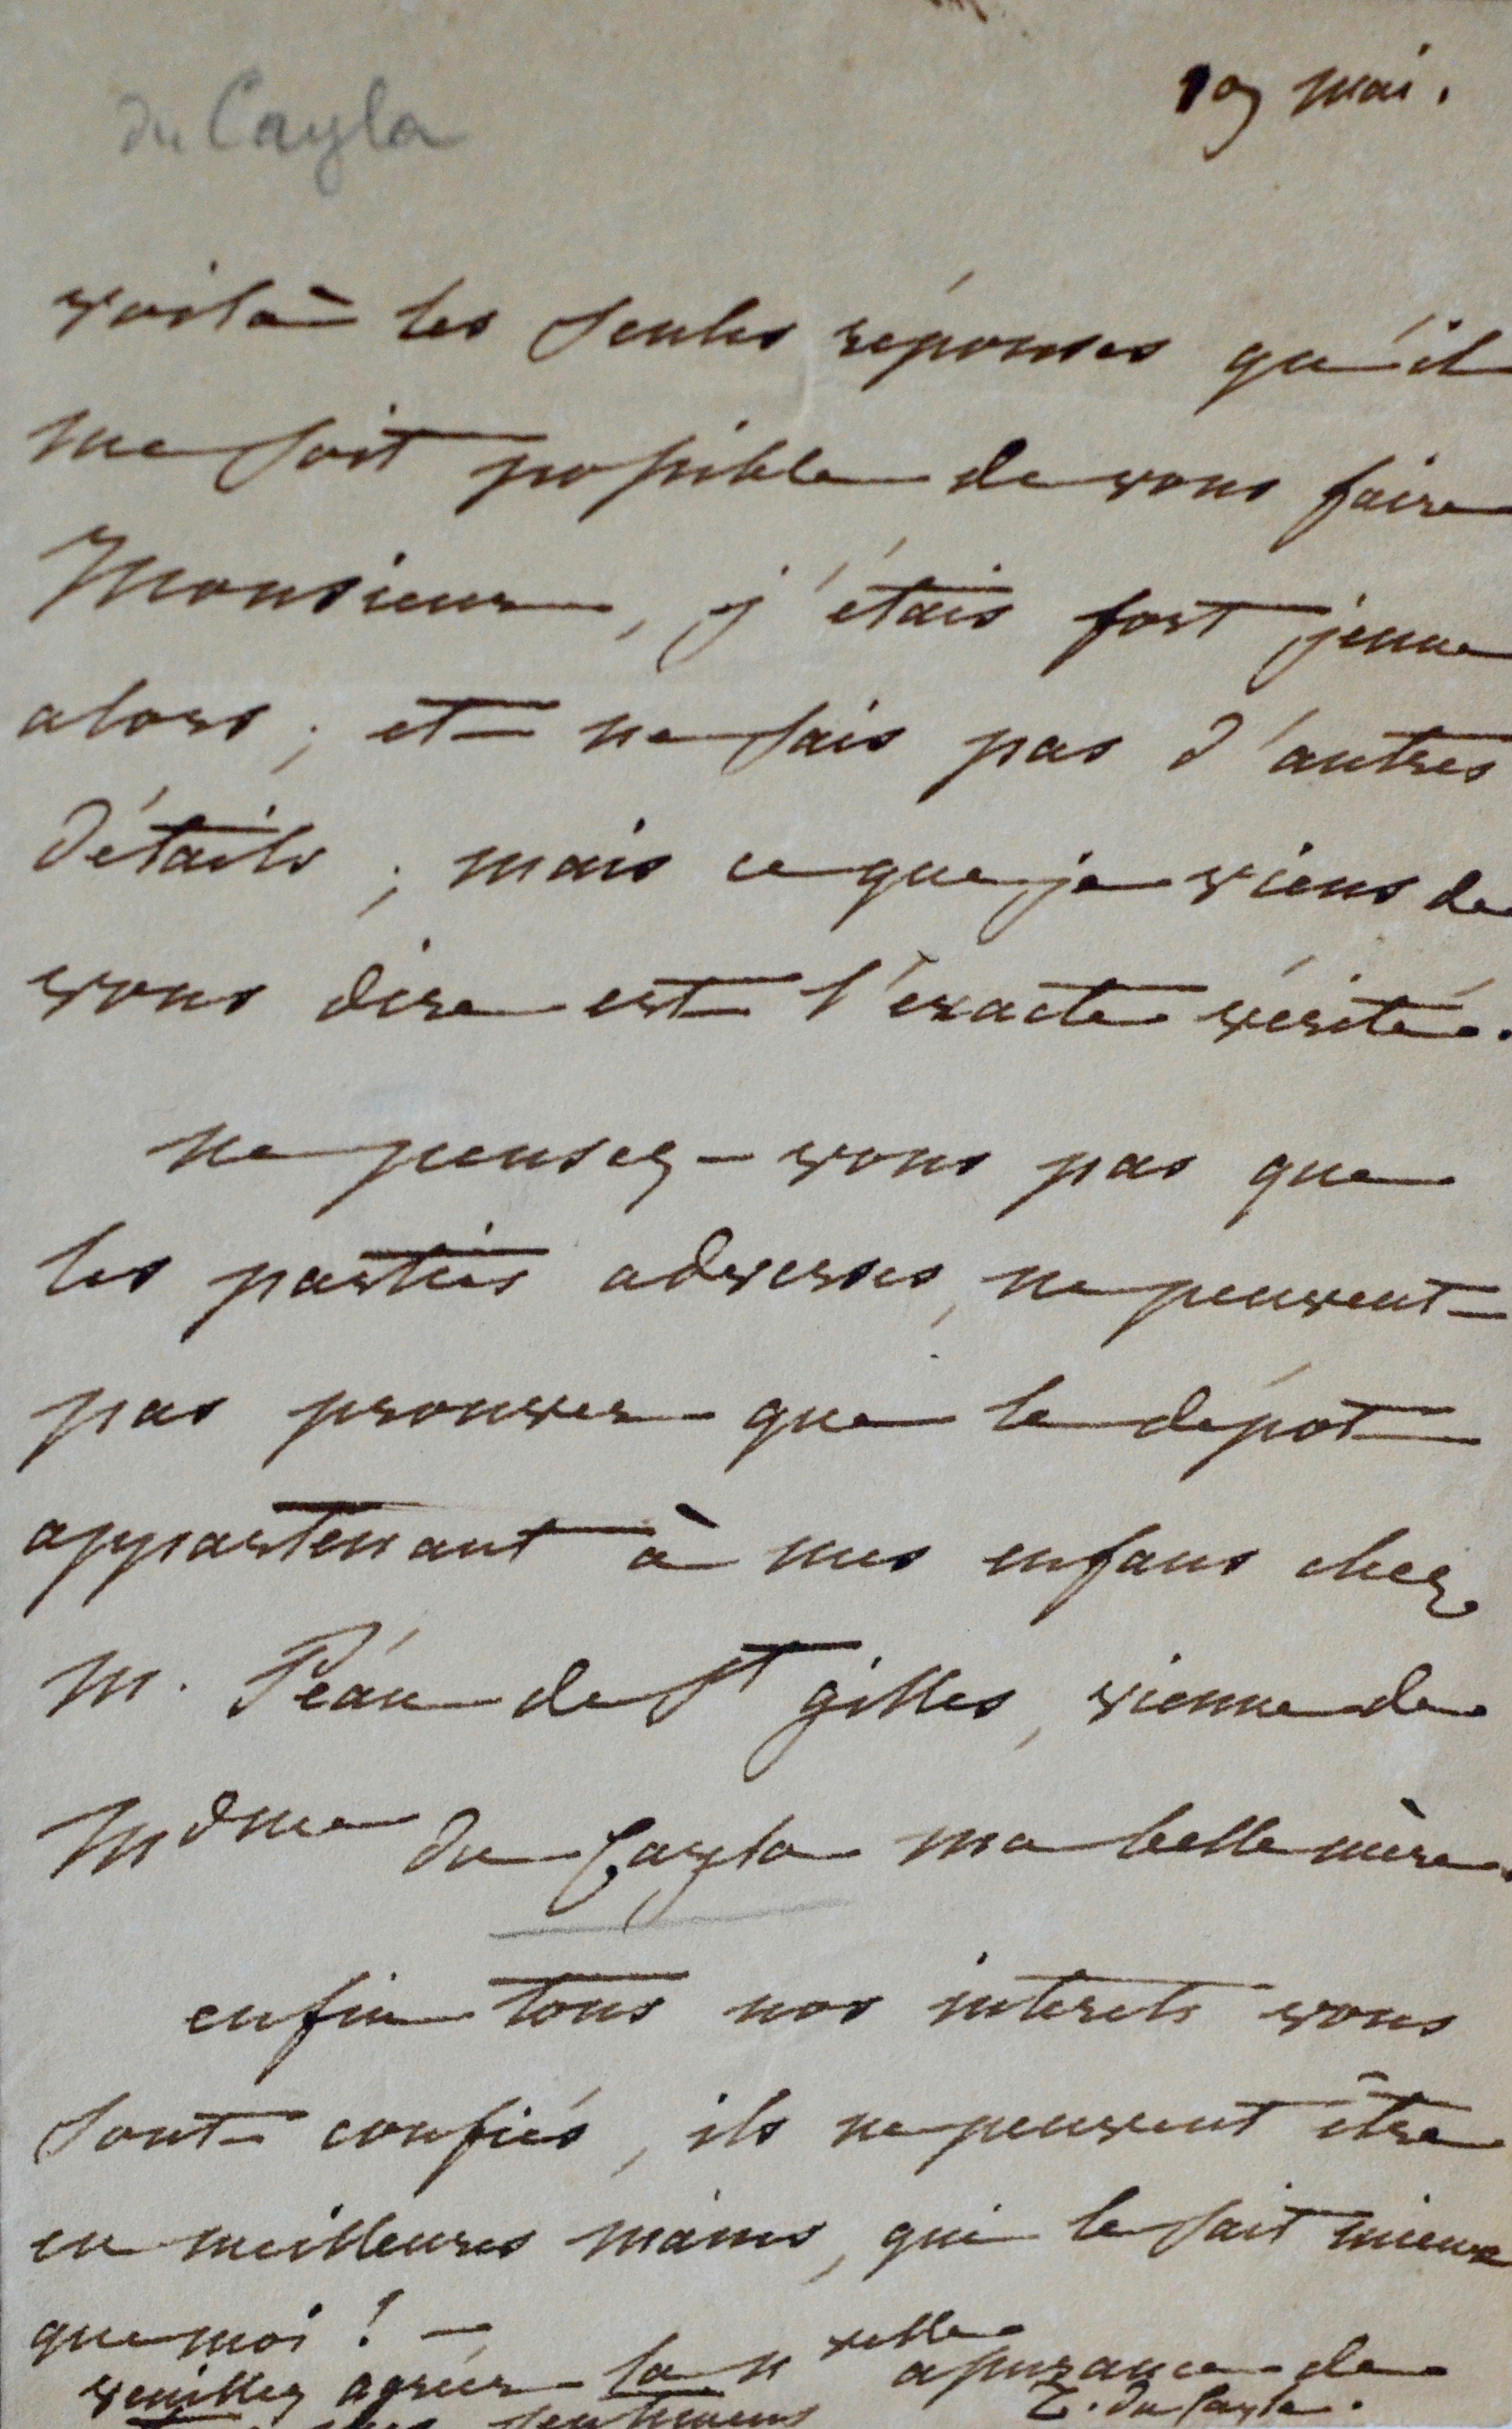 du Cayla
19 mai.
voilà les seules réponses qu'il
me soit possible de vous faire
Monsieur, j'étais fort jeune
alors ; et ne sais pas d'autres
détails ; mais ce que je viens de
vous dire est l'exacte vérité.
ne pensez-vous pas que
les parties adverses, ne peuvent
pas prouver que le dépot
appartenant à mes enfans chez
M. Péan de St gilles, vienne de
Mdme du Cayla ma belle mère.
enfin tous nos interets vous
sont confiés, ils ne peuvent être
en meilleures mains, qui le sait mieux
que moi ! —
veuillez agréer la nvelle assurance de
sentimens
du Cayla.